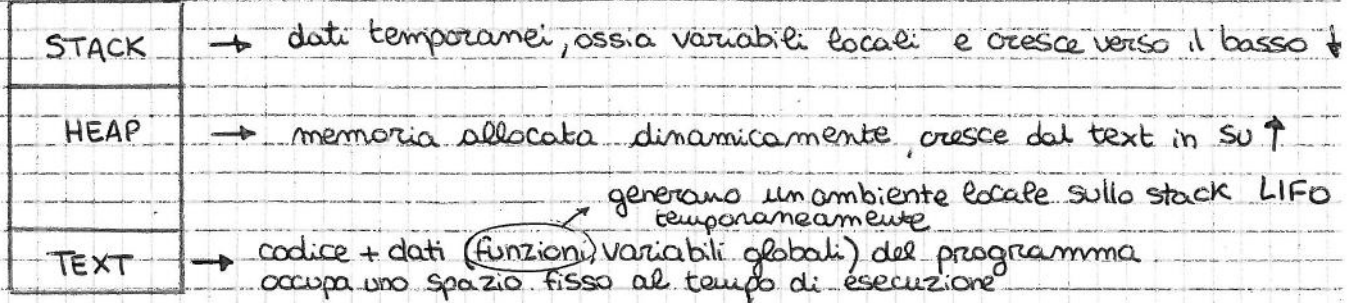 STACK → dati temporanei, ossia variabili locali e cresce verso il basso ↓
HEAP → memoria allocata dinamicamente, cresce dal text in su ↑
generano un ambiente locale sullo stack LIFO
temporaneamente
TEXT → codice + dati (funzioni, variabili globali) del programma
occupa uno spazio fisso al tempo di esecuzione